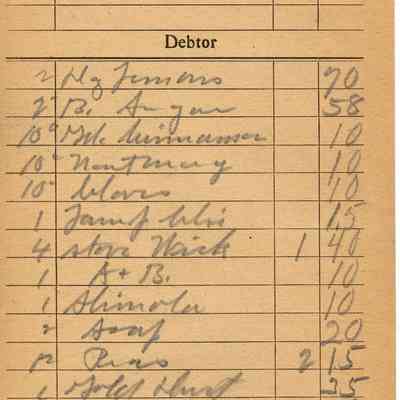 Debtor
2 Dz Lemons 70
2 B. Sugar 58
10c Gr. Cinnamon 10
10c Nutmeg 10
10c Cloves 10
1 Lamp 15
4 Stove Wick 1 40
1 A + B. 10
1 10
2 Soap 20
Peas 2 15
1 Gold Dust 25